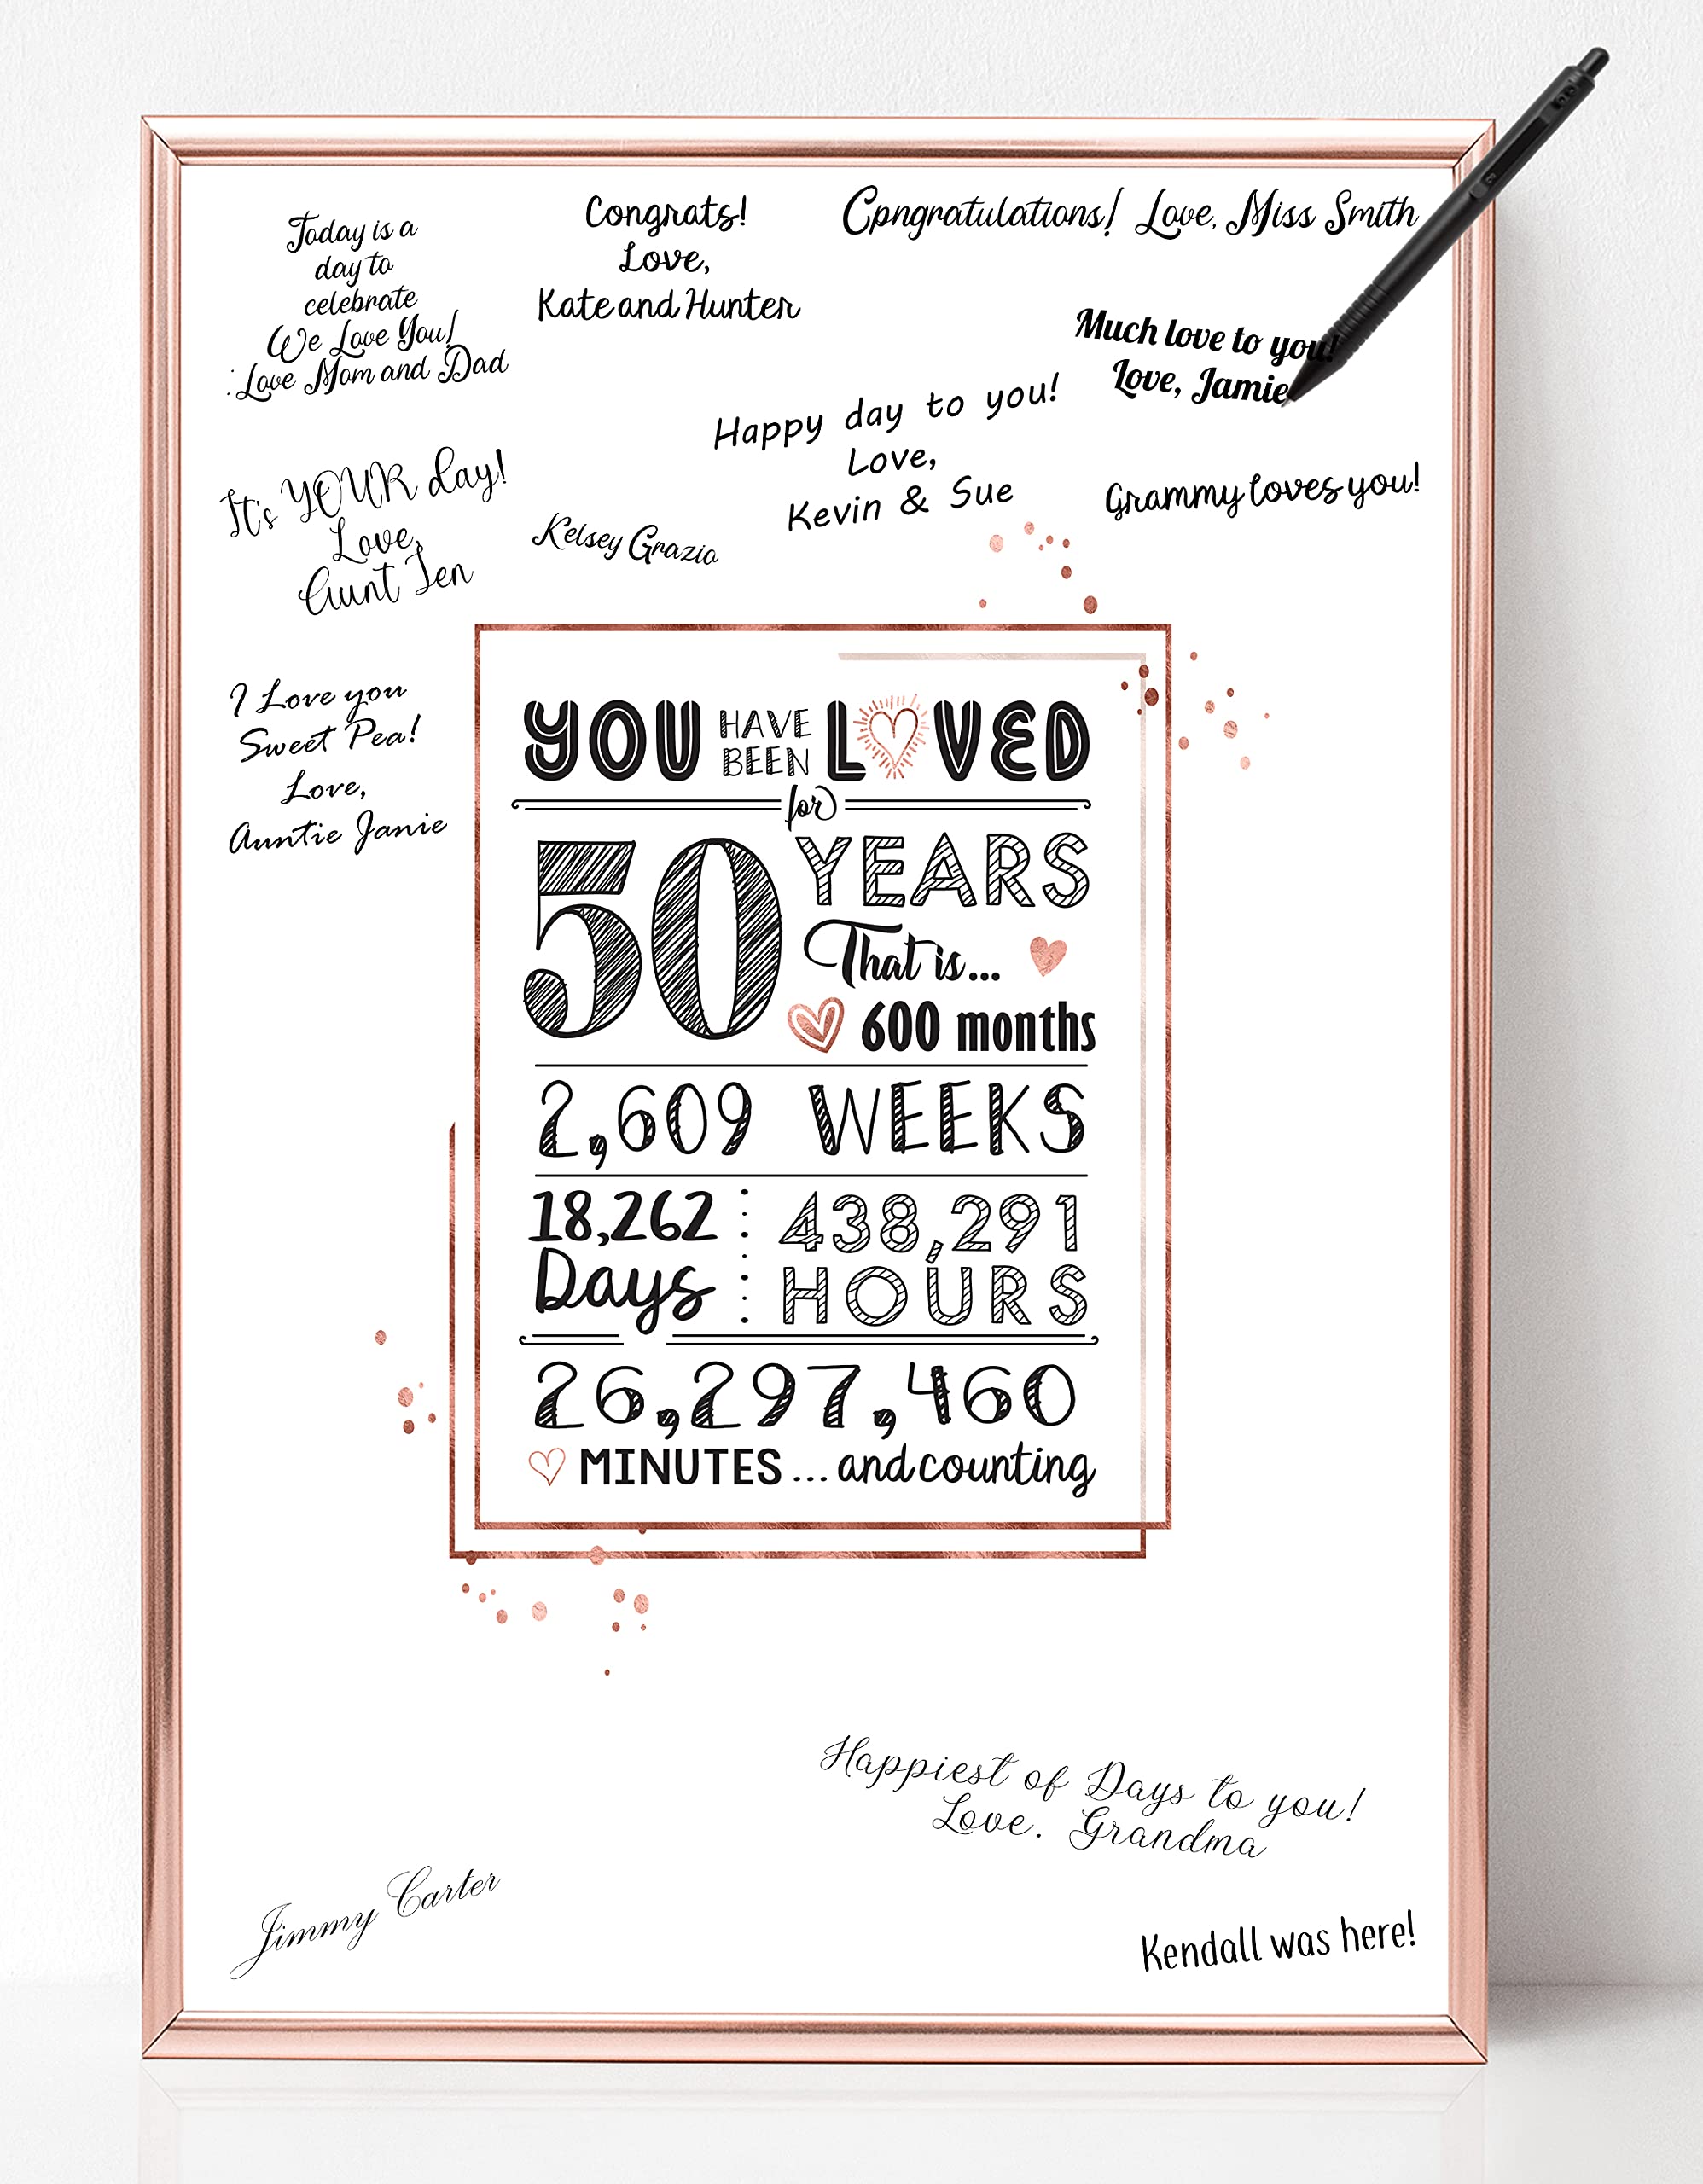 Today is a
day to
celebrate
We Love You!
Love Mom and Dad
Congrats!
Love,
Kate and Hunter
Cpngratulations! Love, Miss Smith
Much love to you!
Love, Jamie
Happy day to you!
Love,
Kevin & Sue
Grammy loves you!
It's YOUR day!
Love,
Aunt Jen
Kelsey Grazia
I Love you
Sweet Pea!
Love,
Auntie Janie
YOU HAVE BEEN LOVED
for
50 YEARS
That is...
600 months
2,609 WEEKS
18,262
Days
438,291
HOURS
26,297,460
MINUTES ... and counting
Happiest of Days to you!
Love. Grandma
Jimmy Carter
Kendall was here!